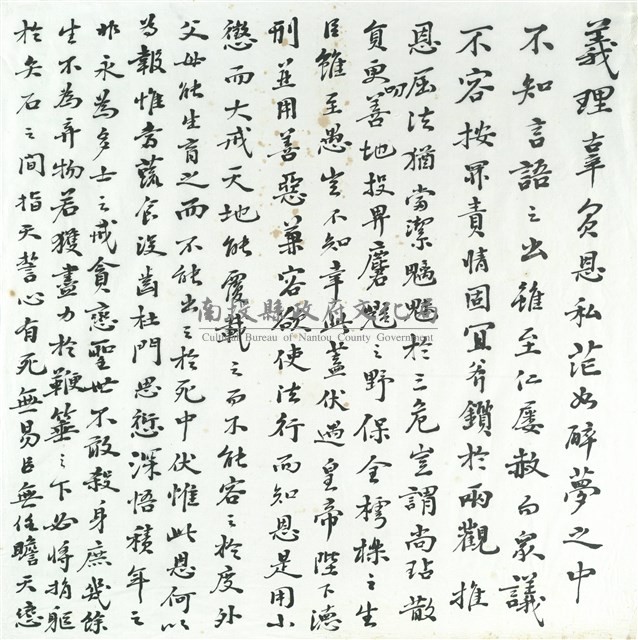 義理辜負恩私茫如醉夢之中
不知言語之出雖至仁屢赦而衆議
不容按罪責情固宜斧鑕於兩觀推
恩屈法猶當潔魑魅於三危豈謂尚玷散
員更叨善地投畀麏鼯之野保全樗櫟之生
臣雖至愚豈不知幸此蓋伏遇皇帝陛下德
刑並用善惡兼容欲使法行而知恩是用小
懲而大戒天地能覆載之而不能容之於度外
父母能生育之而不能出之於死中伏惟此恩何以
為報惟當蔬食沒齒杜門思愆深悟積年之
非永為多士之戒貪戀聖世不敢殺身庶幾餘
生不為棄物若獲盡力於鞭箠之下必將捐軀
於矢石之間指天誓心有死無易臣無任瞻天戀
南投縣政府文化局
Cultural Bureau of Nantou County Government